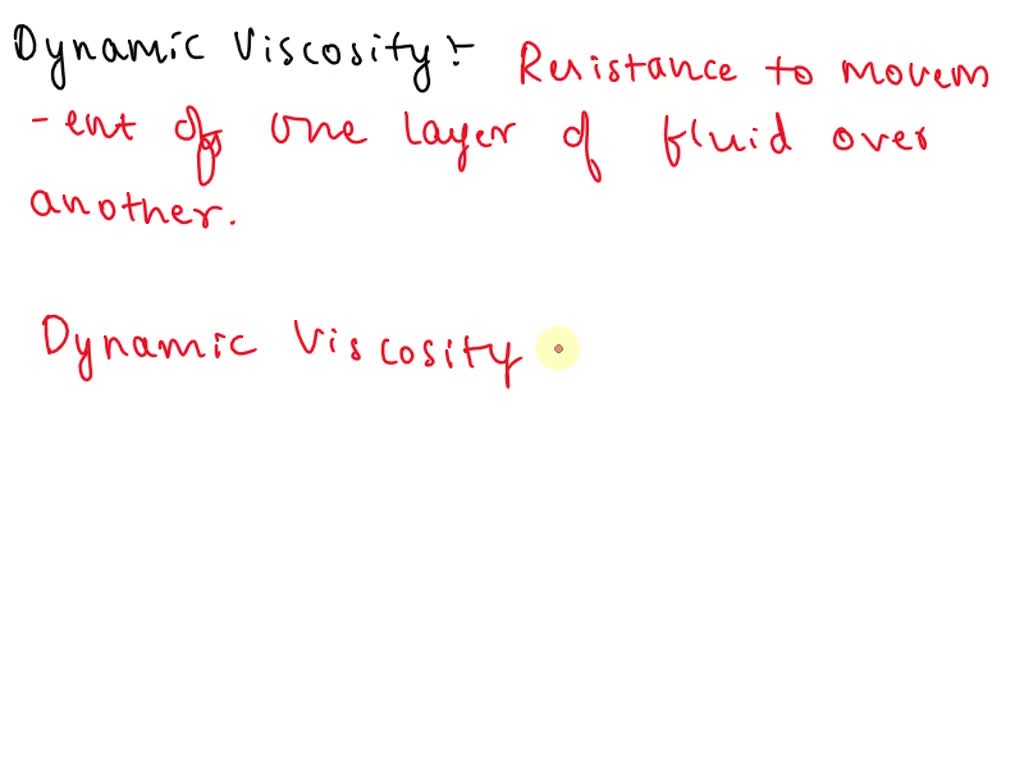 Dynamic Viscosity :-  Resistance to movem
-ent of one layer of fluid over
another.
Dynamic Viscosity